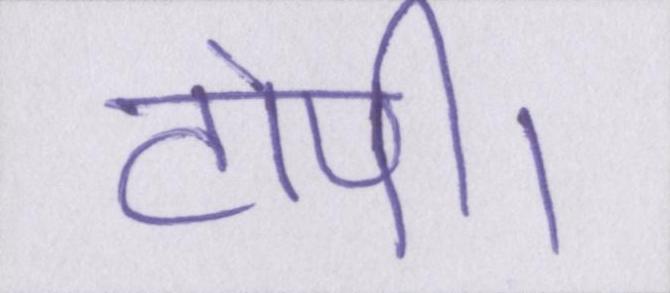 टोपी।